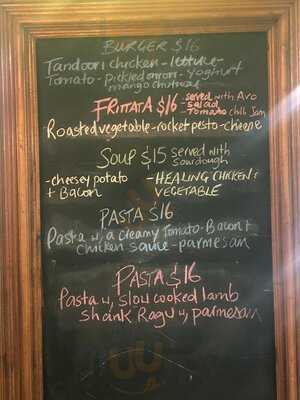 BURGER $16
Tandoori chicken - lettuce -
Tomato - Pickled onion - Yoghurt
mango chutney
FRITTATA $16 - served with Avo
- salad
- Tomato chilli Jam
Roasted vegetable - rocket pesto - cheese
SOUP $15 served with
sourdough
- cheesey potato
+ Bacon
- HEALING CHICKEN &
VEGETABLE
PASTA $16
Pasta w, a creamy Tomato - Bacon +
chicken sauce - parmesan
PASTA $16
Pasta w, slow cooked lamb
shank Ragu w, parmesan